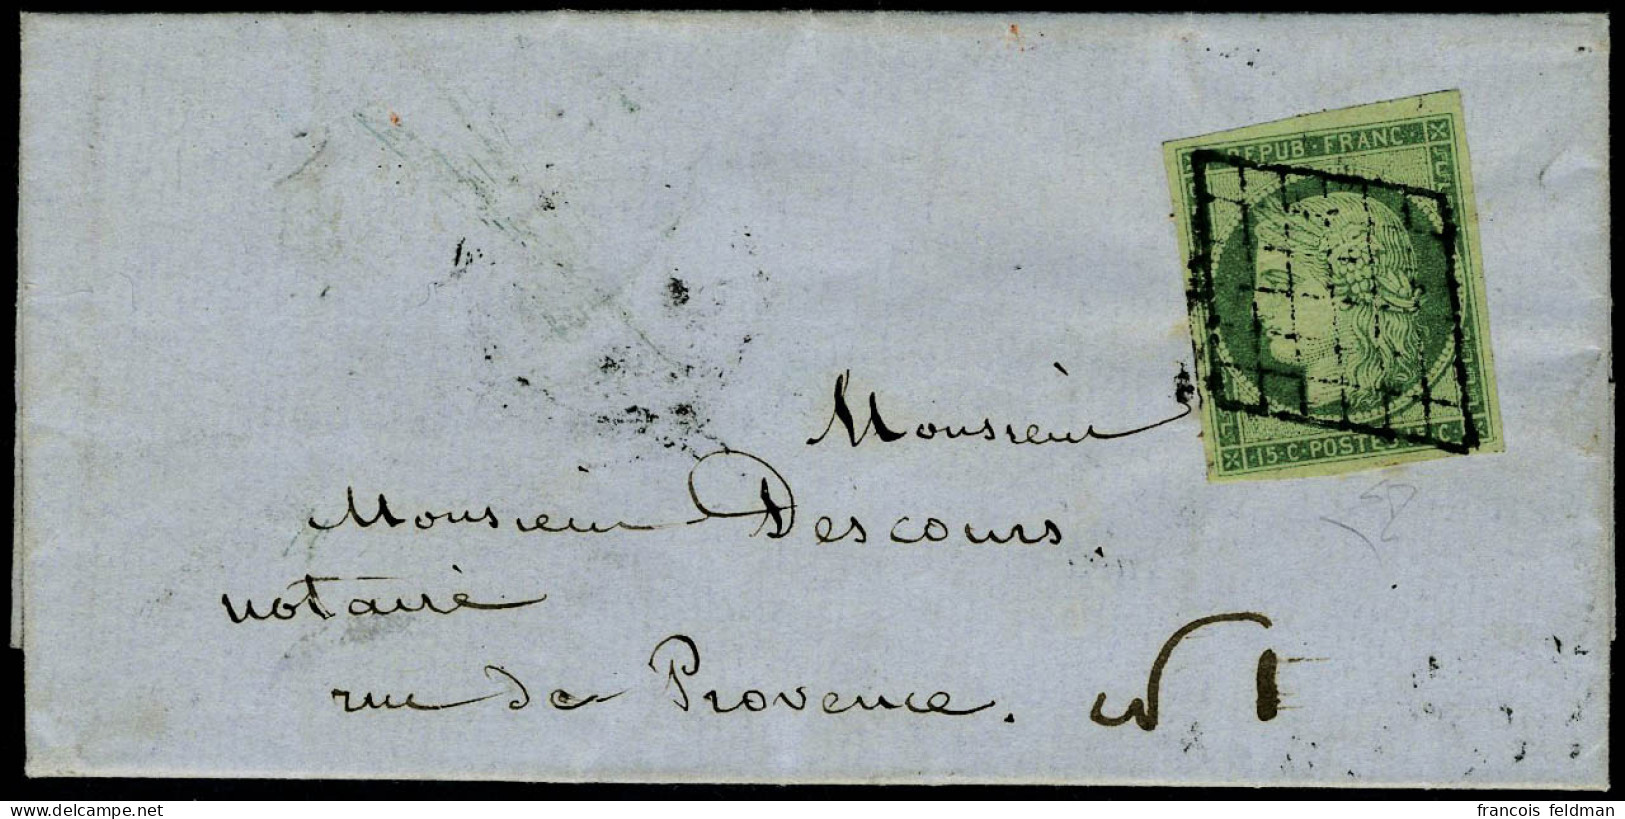 REPUB · FRANC ·
· 15 · C · POSTES 15 · C ·
Monsieur
Monsieur Descours.
notaire
rue de Provence. n 1
delcampe.net
francois feldman